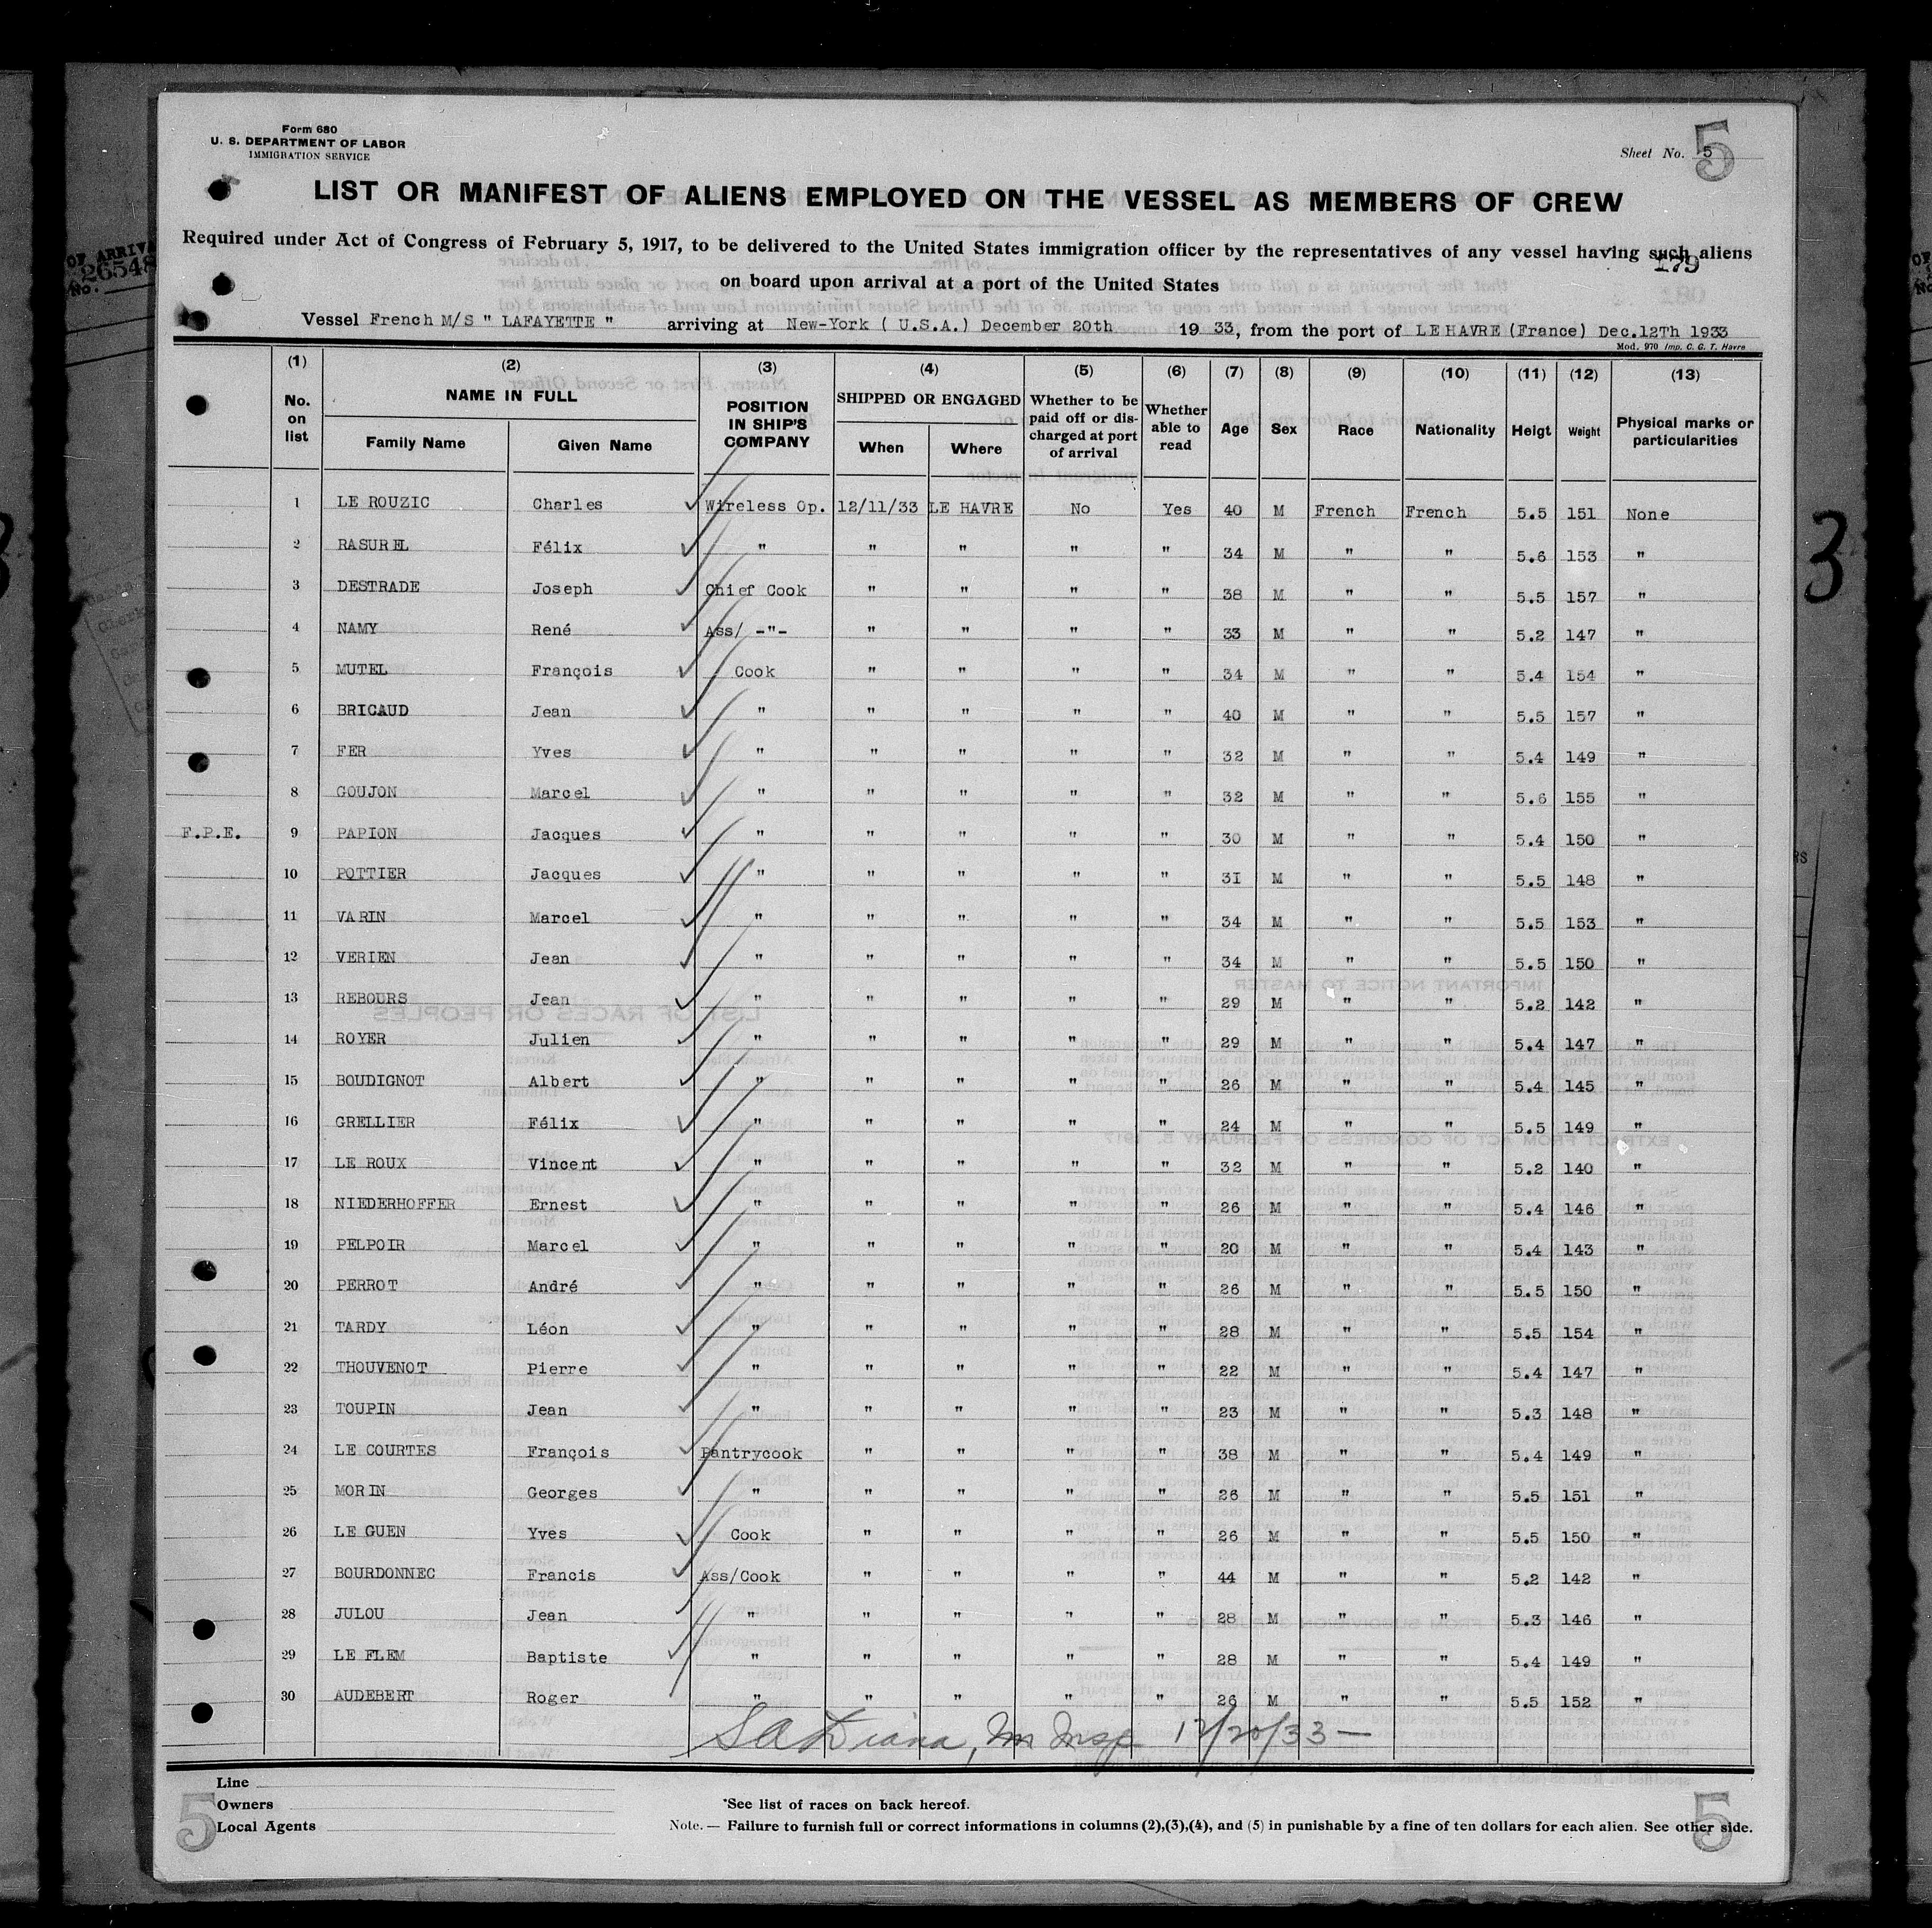 Form 680
U. S. DEPARTMENT OF LABOR
IMMIGRATION SERVICE
Sheet No. 5
5
LIST OR MANIFEST OF ALIENS EMPLOYED ON THE VESSEL AS MEMBERS OF CREW
Required under Act of Congress of February 5, 1917, to be delivered to the United States immigration officer by the representatives of any vessel having such aliens
on board upon arrival at a port of the United States
179
Vessel French M/S " LAFAYETTE " arriving at New-York ( U.S.A.) December 20th 1933, from the port of LE HAVRE (France) Dec.12Th 1933
Mod. 970 Imp. C. G. T. Havre
(1) No. on list (2) NAME IN FULL Family Name Given Name (3) POSITION IN SHIP'S COMPANY (4) SHIPPED OR ENGAGED When Where (5) Whether to be paid off or discharged at port of arrival (6) Whether able to read (7) Age (8) Sex (9) Race (10) Nationality (11) Heigt (12) Weight (13) Physical marks or particularities
1 LE ROUZIC Charles Wireless Op. 12/11/33 LE HAVRE No Yes 40 M French French 5.5 151 None
2 RASUREL Félix " " " " " 34 M " " 5.6 153 "
3 DESTRADE Joseph Chief Cook " " " " 38 M " " 5.5 157 "
4 NAMY René Ass/ -"- " " " " 33 M " " 5.2 147 "
5 MUTEL François Cook " " " " 34 M " " 5.4 154 "
6 BRICAUD Jean " " " " " 40 M " " 5.5 157 "
7 FER Yves " " " " " 32 M " " 5.4 149 "
8 GOUJON Marcel " " " " " 32 M " " 5.6 155 "
F.P.E. 9 PAPION Jacques " " " " " 30 M " " 5.4 150 "
10 POTTIER Jacques " " " " " 31 M " " 5.5 148 "
11 VARIN Marcel " " " " " 34 M " " 5.5 153 "
12 VERIEN Jean " " " " " 34 M " " 5.5 150 "
13 REBOURS Jean " " " " " 29 M " " 5.2 142 "
14 ROYER Julien " " " " " 29 M " " 5.4 147 "
15 BOUDIGNOT Albert " " " " " 26 M " " 5.4 145 "
16 GRELLIER Félix " " " " " 24 M " " 5.5 149 "
17 LE ROUX Vincent " " " " " 32 M " " 5.2 140 "
18 NIEDERHOFFER Ernest " " " " " 26 M " " 5.4 146 "
19 PELPOIR Marcel " " " " " 20 M " " 5.4 143 "
20 PERROT André " " " " " 26 M " " 5.5 150 "
21 TARDY Léon " " " " " 28 M " " 5.5 154 "
22 THOUVENOT Pierre " " " " " 22 M " " 5.4 147 "
23 TOUPIN Jean " " " " " 23 M " " 5.3 148 "
24 LE COURTES François Pantrycook " " " " 38 M " " 5.4 149 "
25 MORIN Georges " " " " " 26 M " " 5.5 151 "
26 LE GUEN Yves Cook " " " " 26 M " " 5.5 150 "
27 BOURDONNEC Francis Ass/Cook " " " " 44 M " " 5.2 142 "
28 JULOU Jean " " " " " 28 M " " 5.3 146 "
29 LE FLEM Baptiste " " " " " 28 M " " 5.4 149 "
30 AUDEBERT Roger " " " " " 26 M " " 5.5 152 "
12/20/33 —
Line
Owners
Local Agents
*See list of races on back hereof.
Note. — Failure to furnish full or correct informations in columns (2),(3),(4), and (5) in punishable by a fine of ten dollars for each alien. See other side.
5
5
3
26548